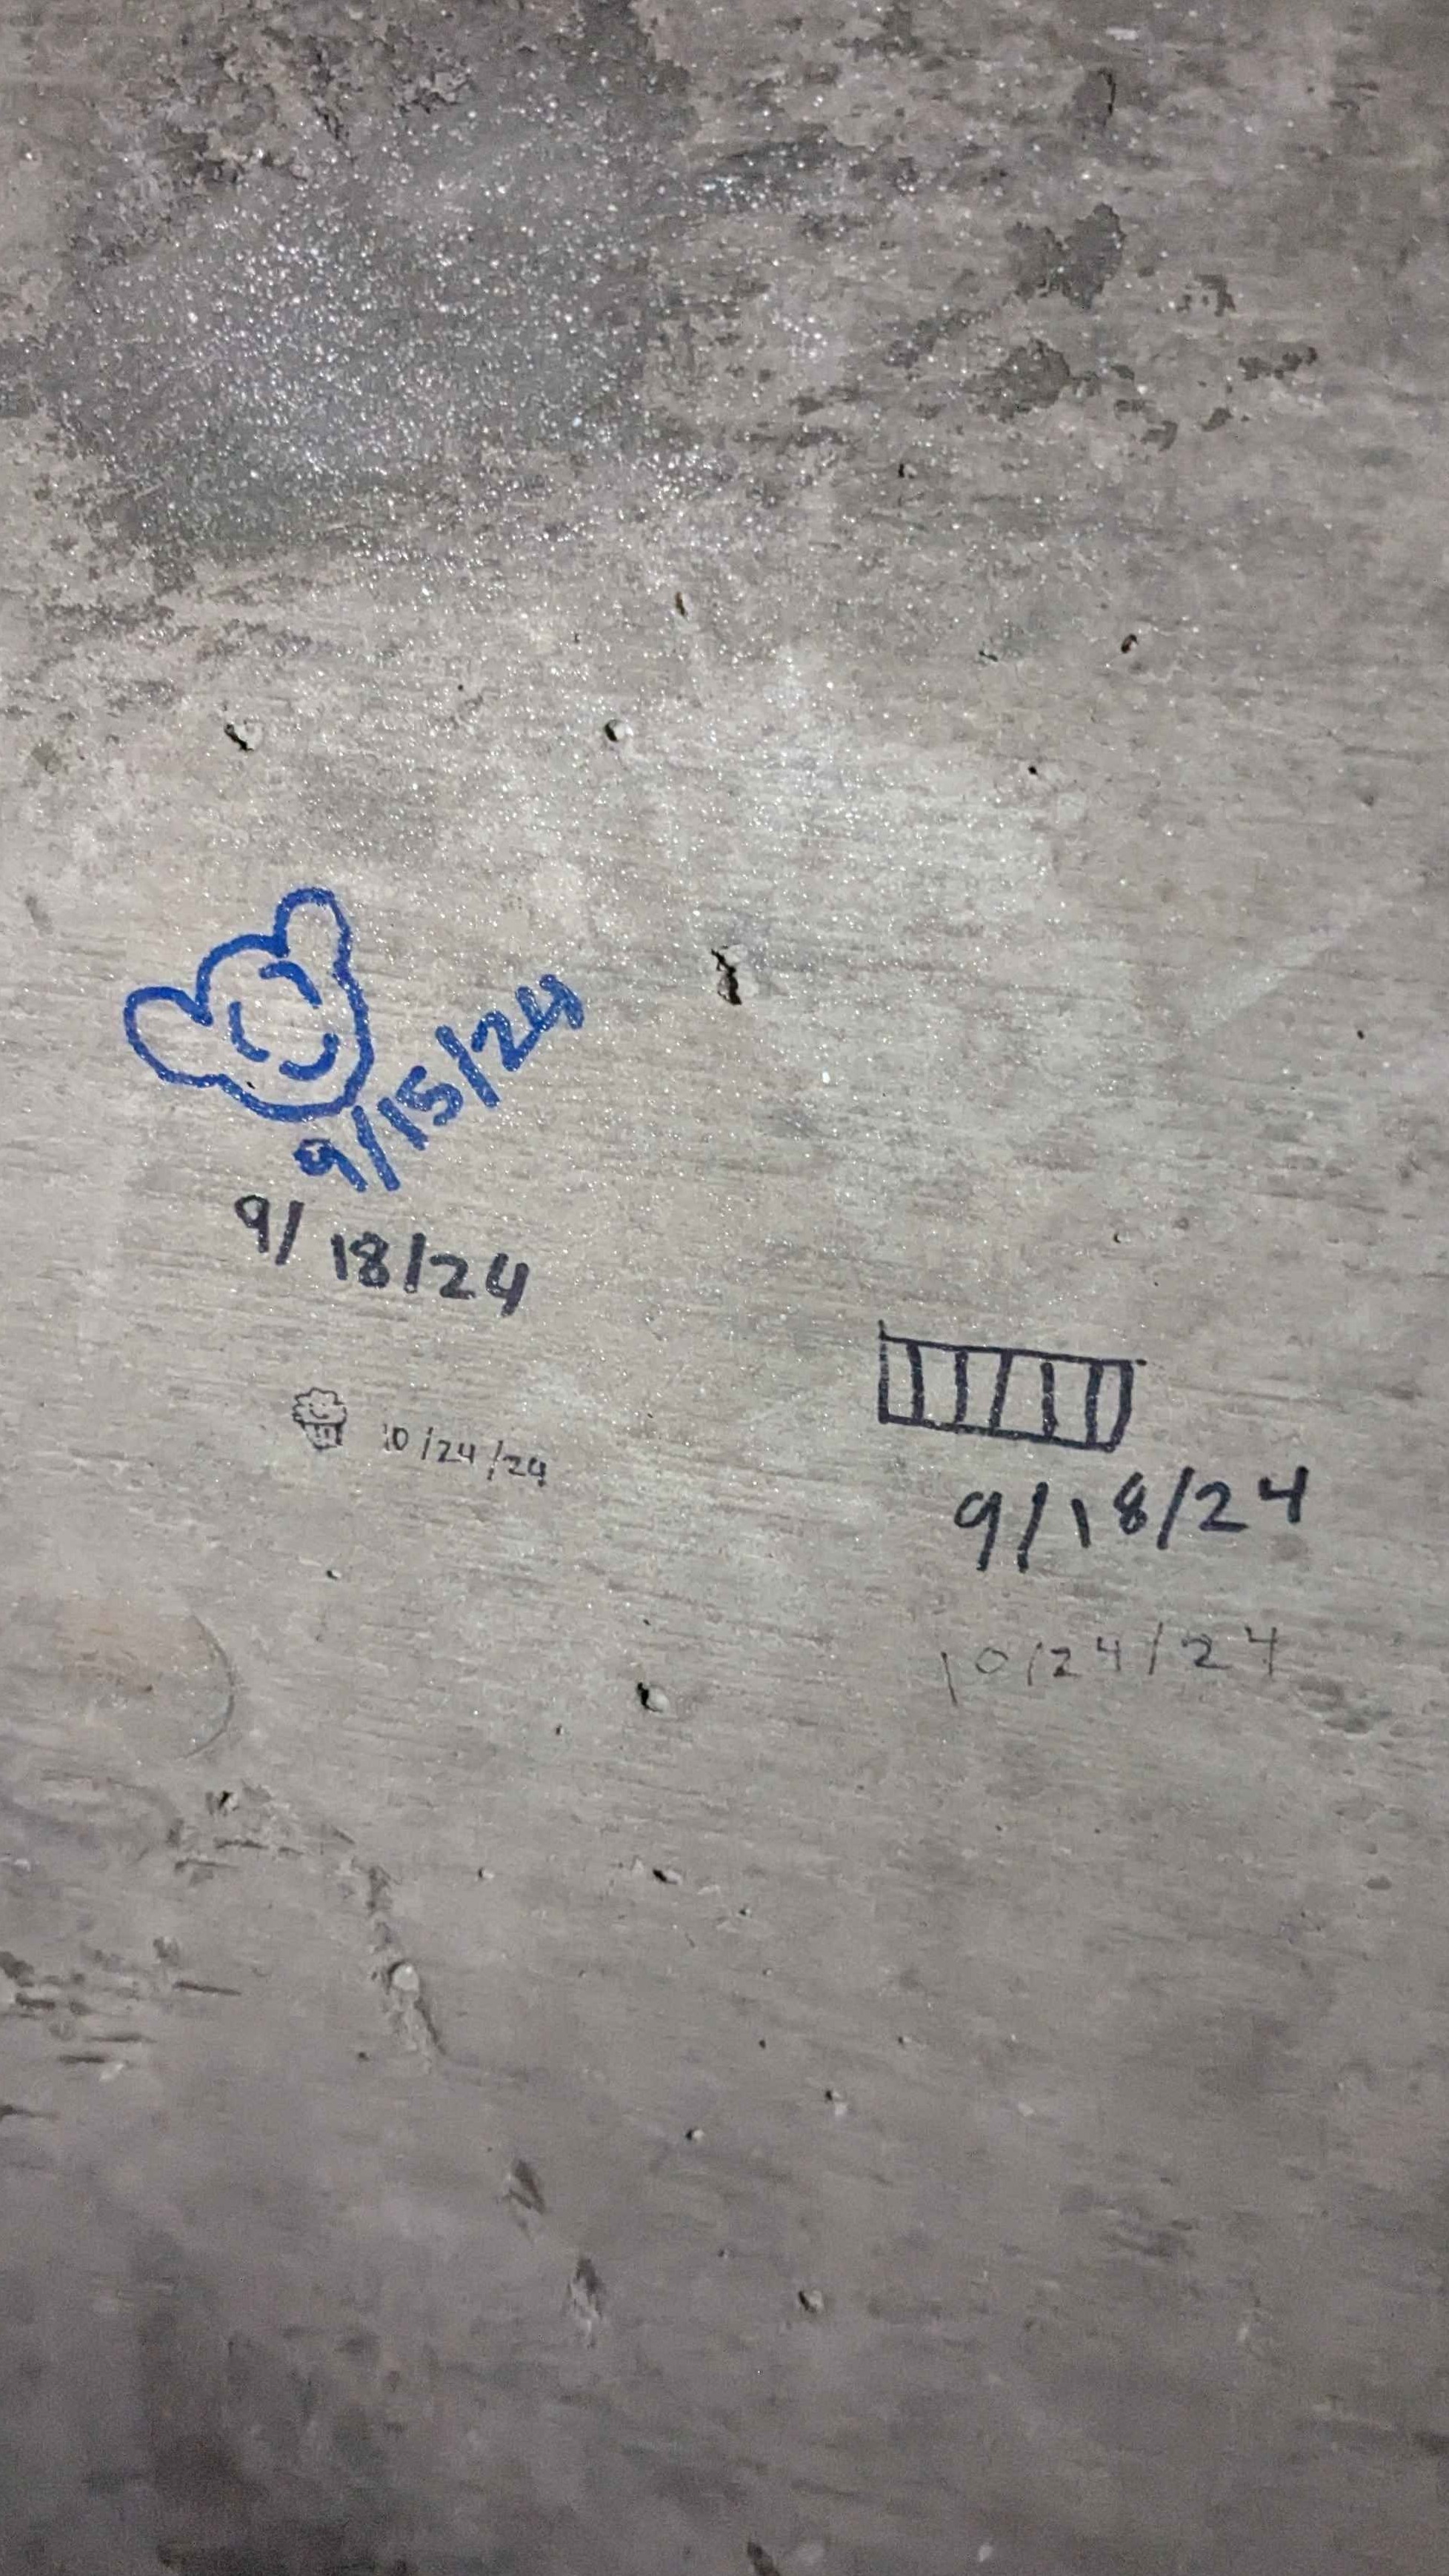 9/15/24
9/18/24
10/24/24
9/18/24
10/24/24